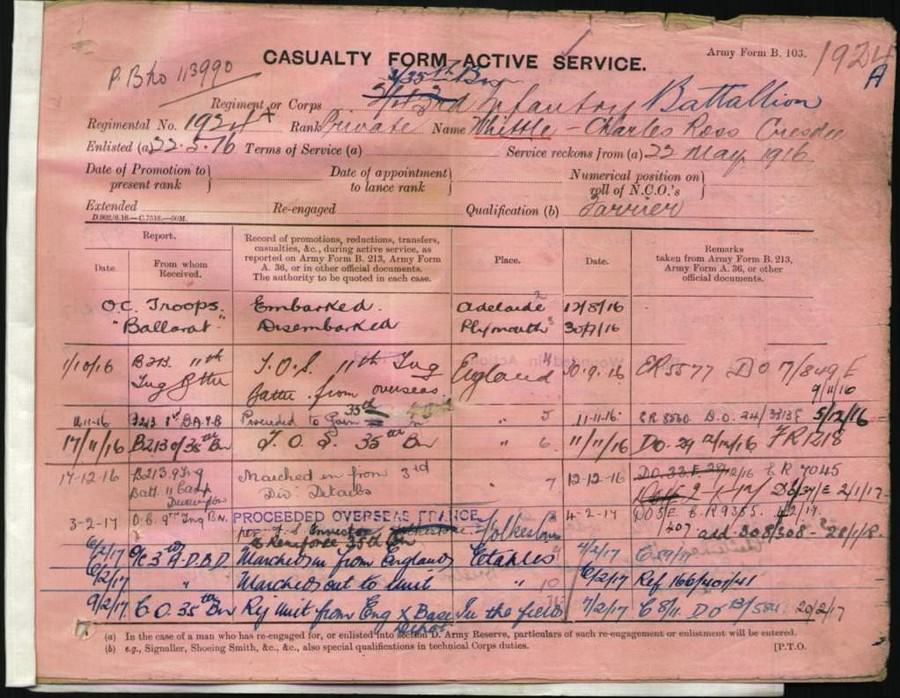 1924
A
P.Bko 113990
CASUALTY FORM ACTIVE SERVICE.
Army Form B. 103.
3/35th Bn
Regiment or Corps 2/43rd Infantry Battallion
Regimental No. 1924A Rank Private Name Whittle - Charles Ross
Enlisted (a) 22.5.16 Terms of Service (a) Service reckons from (a) 22 May 1916
Date of Promotion to present rank } Date of appointment to lance rank } Numerical position on roll of N.C.O.'s }
Extended Re-engaged Qualification (b) Farrier
D.902/6.16.—C.7518.—50M.
Report. Record of promotions, reductions, transfers, casualties, &c., during active service, as reported on Army Form B. 213, Army Form A. 36, or in other official documents. The authority to be quoted in each case. Place. Date. Remarks taken from Army Form B. 213, Army Form A. 36, or other official documents.
Date. From whom Received.
O.C. Troops Embarked Adelaide 2 12/8/16
"Ballarat" Disembarked Plymouth 3 30/9/16
1/10/16 B213 11th Trg Bttn T.O.S. 11th Trg Battn from overseas England 4 30.9.16 ER5577 DO 7/849E
9/11/16
Proceded to Join 35th " 5 11-11-16 D.O. 24/ 5/12/16
17/11/16 B213 of 35th Bn T.O.S 35th Bn " 6 11/11/16 DO. 29 FR1218
17-12-16 B213 9 Trg Batt. 11 Camp Durrington Marched in from 3rd Div Details " 7 12-12-16 ER 7045
2/1/17
3-2-17 O.C. 9th Trng BN. PROCEEDED OVERSEAS FRANCE Folkestone 4-2-17 ER 9355.
& Reinforce 35th Bn add 308/308 - 28/1/18
6/2/17 3rd A.D.B.D Marched in from England Etaples 9 4/2/17
6/2/17 " Marched out to unit " 10 6/2/17 Ref 166/401/41
9/2/17 C O. 35th Bn Rej unit from Eng x Base Depot In the field 7/2/17 C8/11 20/2/17
(a) In the case of a man who has re-engaged for, or enlisted into section D. Army Reserve, particulars of such re-engagement or enlistment will be entered.
(b) e.g., Signaller, Shoeing Smith, &c., &c., also special qualifications in technical Corps duties. [P.T.O.